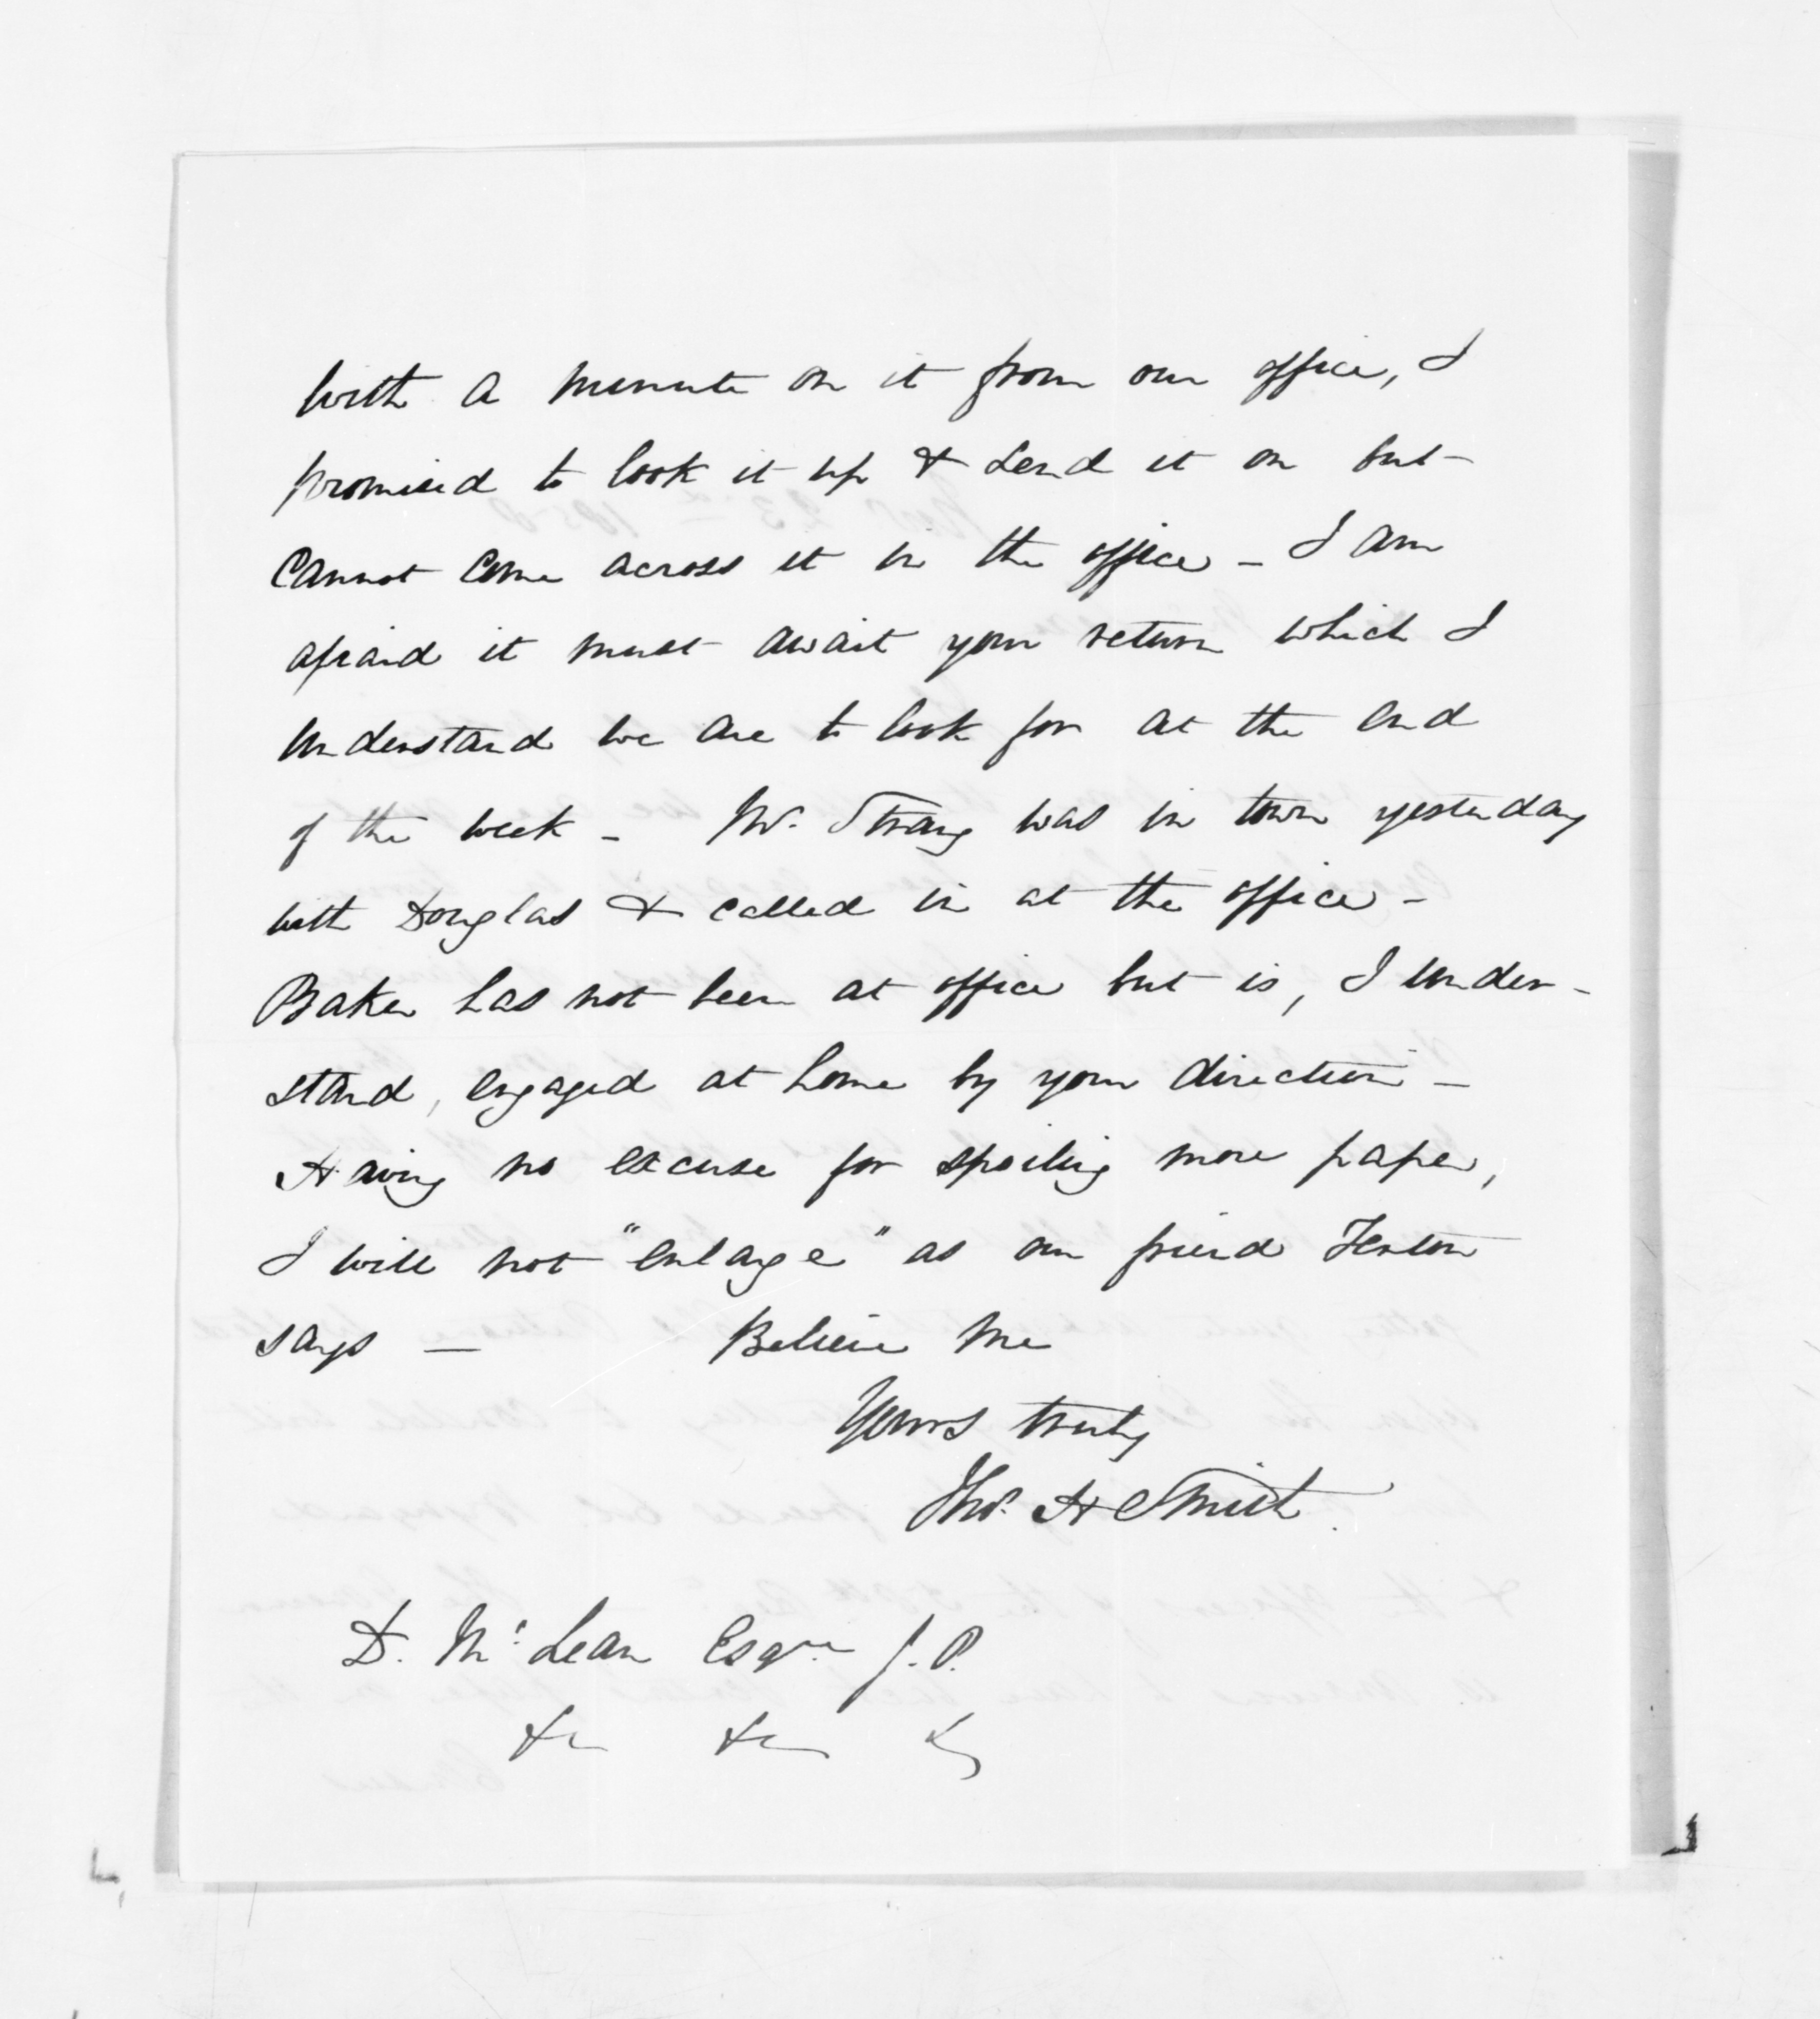 with a minute on it from our office, I
promised to look it up & send it on but
cannot come across it in the office - I am
afraid it must await your return which I
understand we are to look for at the end
of the week - Mr. Strang was in town yesterday
with Douglas & called in at the office -
Baker has not been at office but is, I under-
stand, engaged at home by your direction -
Having no excuse for spoiling more paper,
I will not "enlarge" as our friend Fenton
says — Believe me
Yours truly
Thos. H Smith.
D. McLean Esqre J.P.
&c &c &c